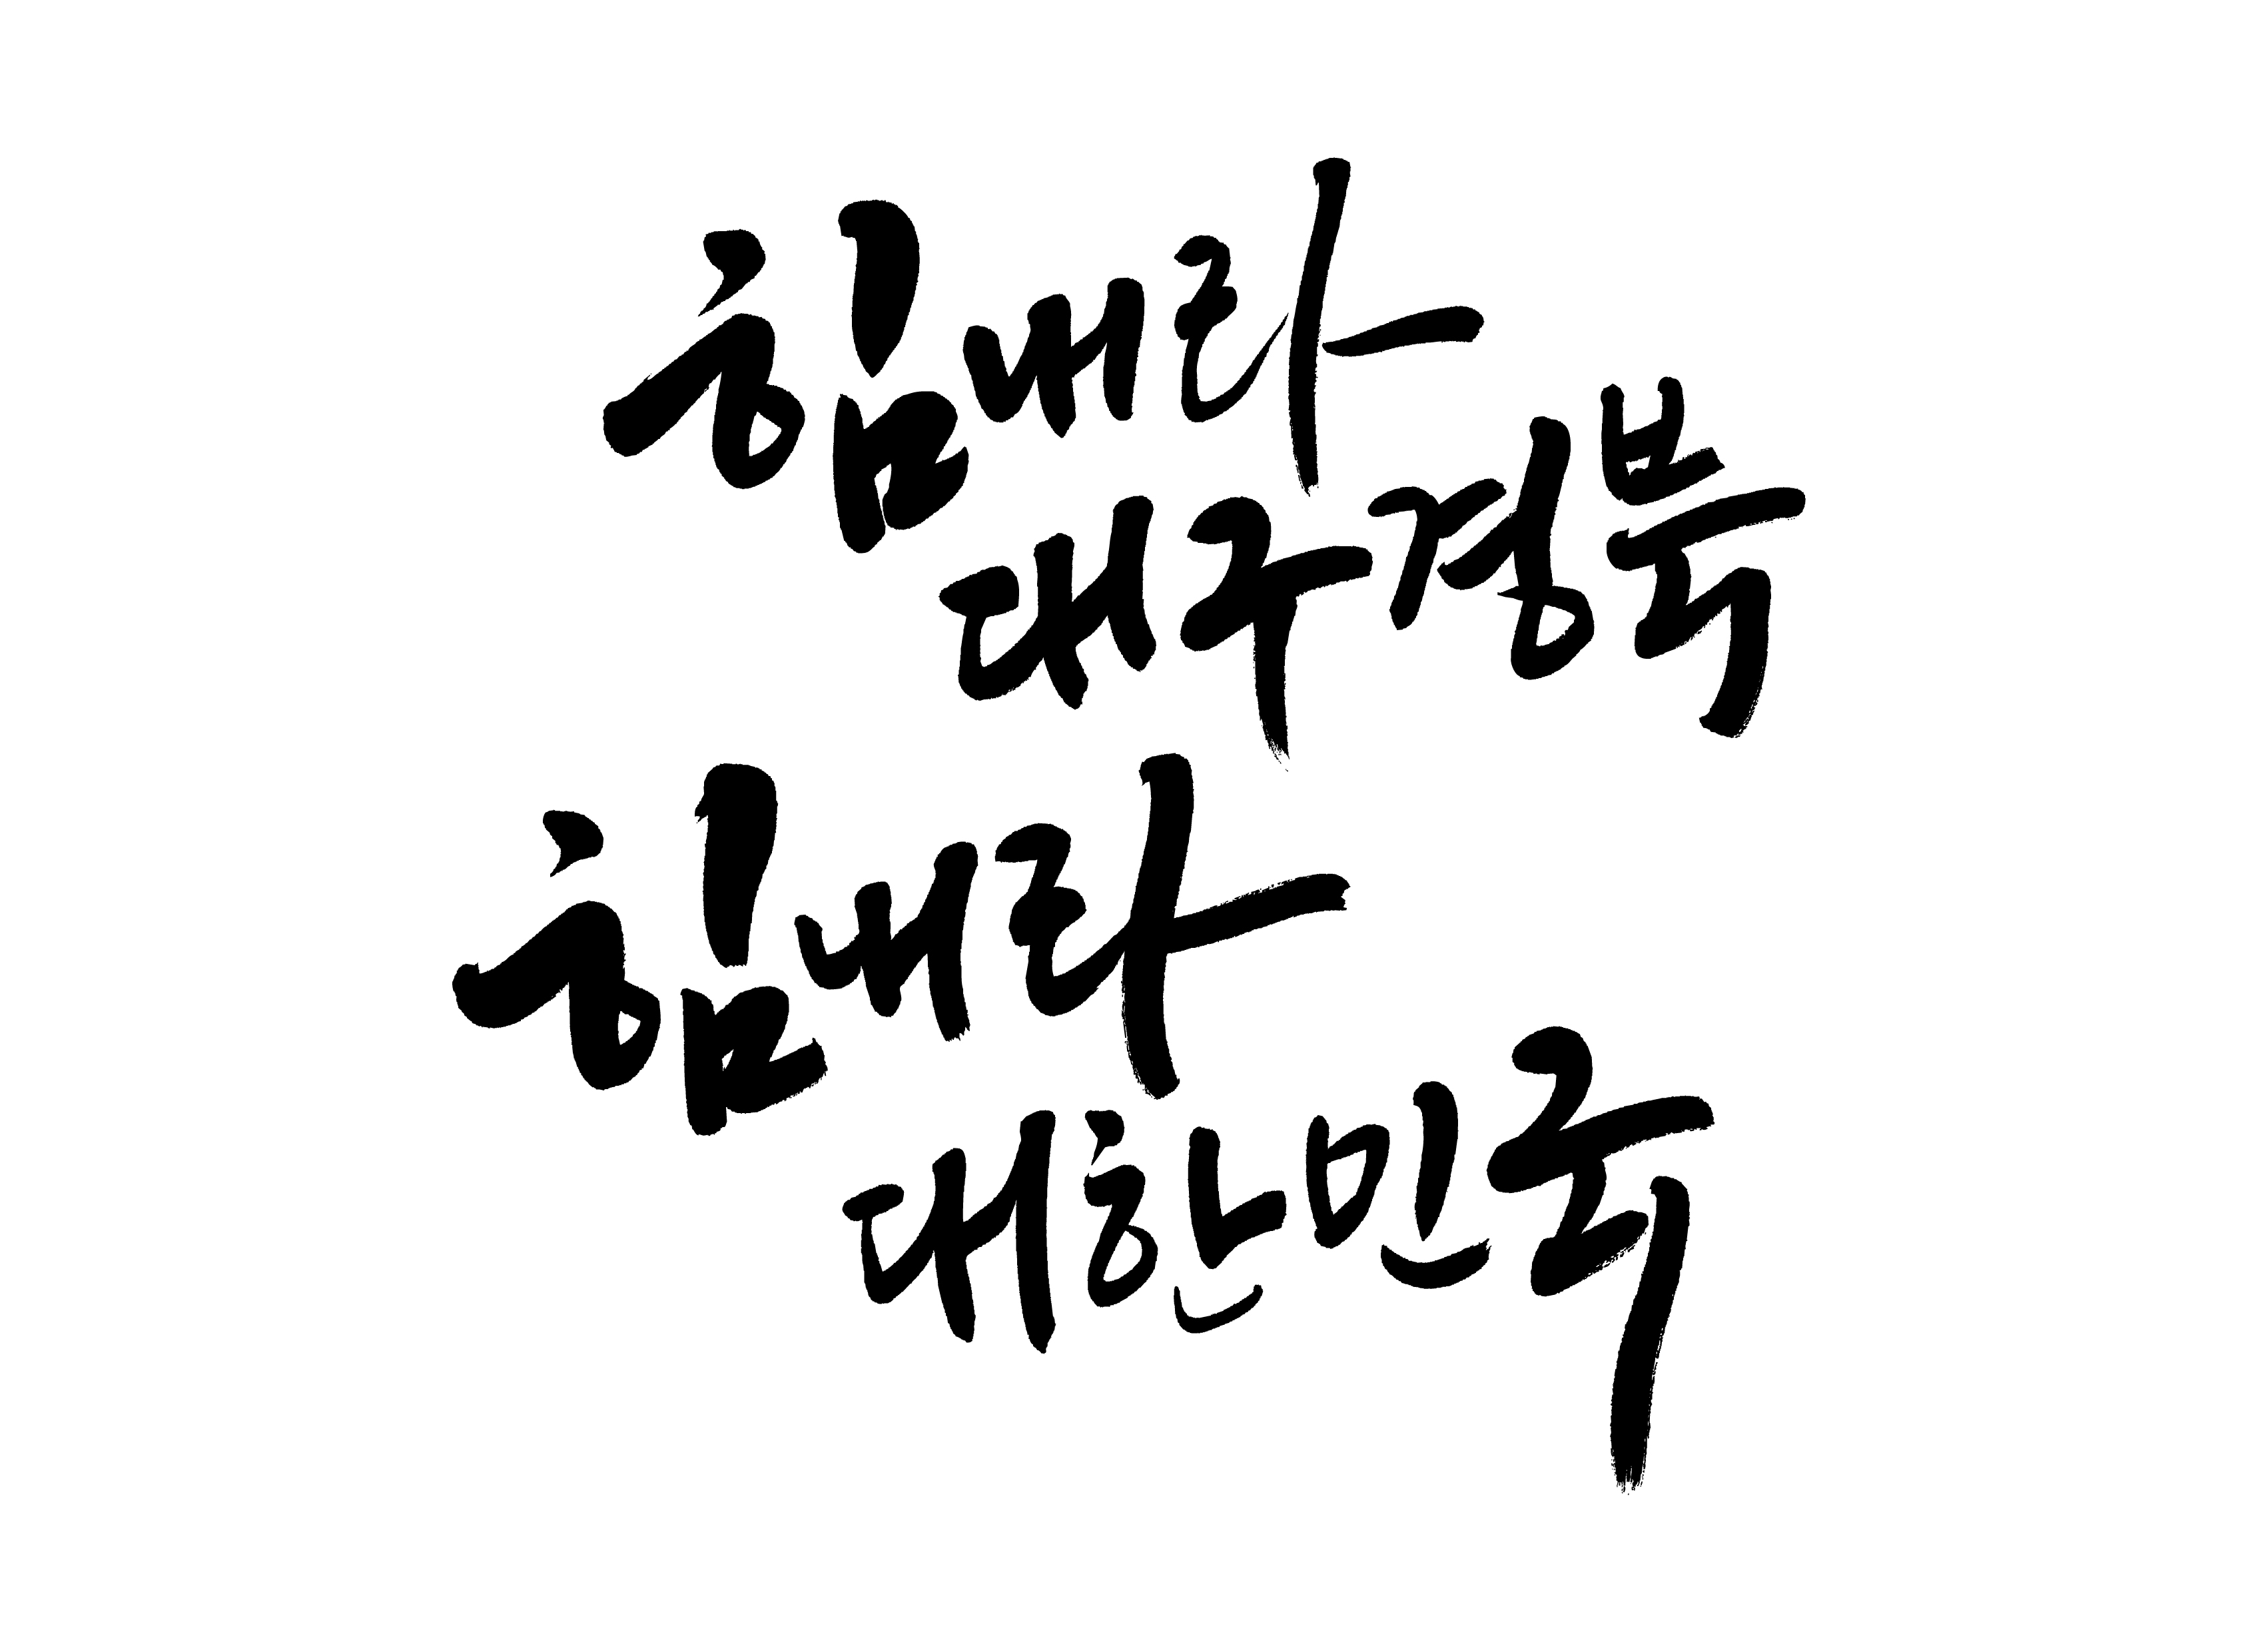 힘내라
대구경북
힘내라
대한민국